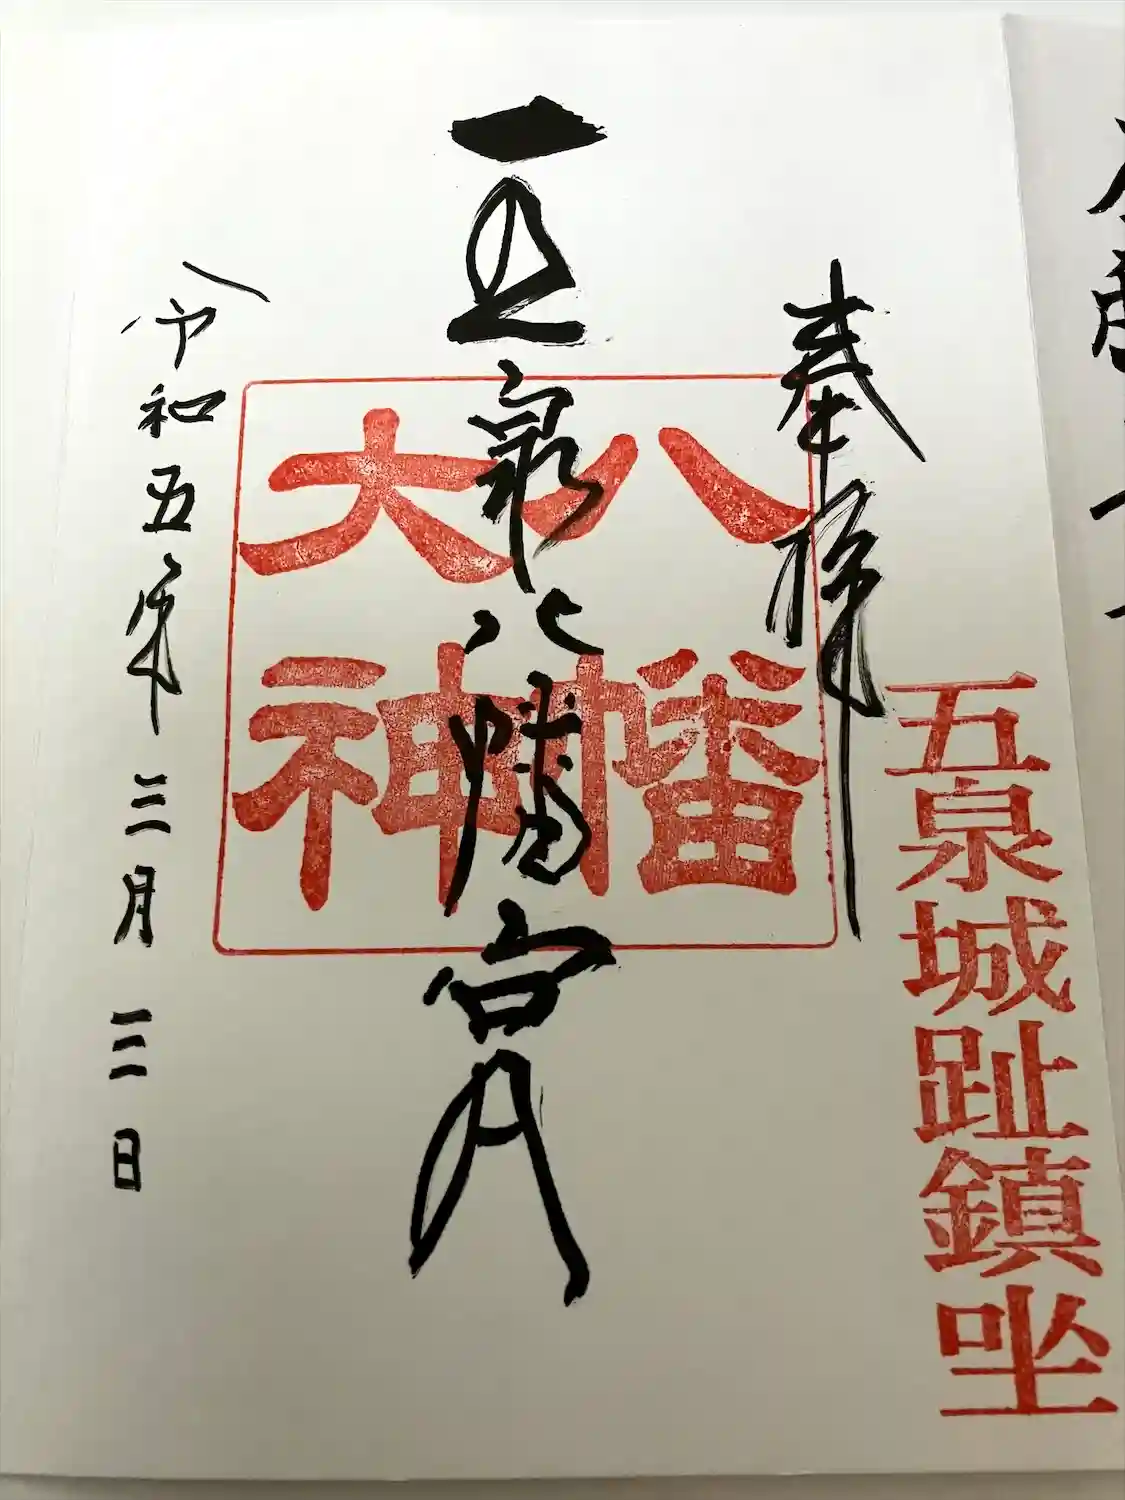 奉拝
五泉城趾鎮坐
五泉八幡宮
八幡
大神
令和五年三月三日